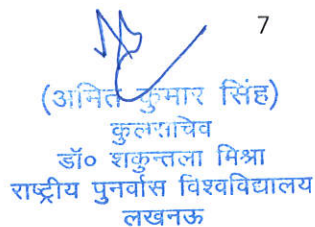 7
(अमित कुमार सिंह)
कुलसचिव
डॉ० शकुन्तला मिश्रा
राष्ट्रीय पुनर्वास विश्वविद्यालय
लखनऊ